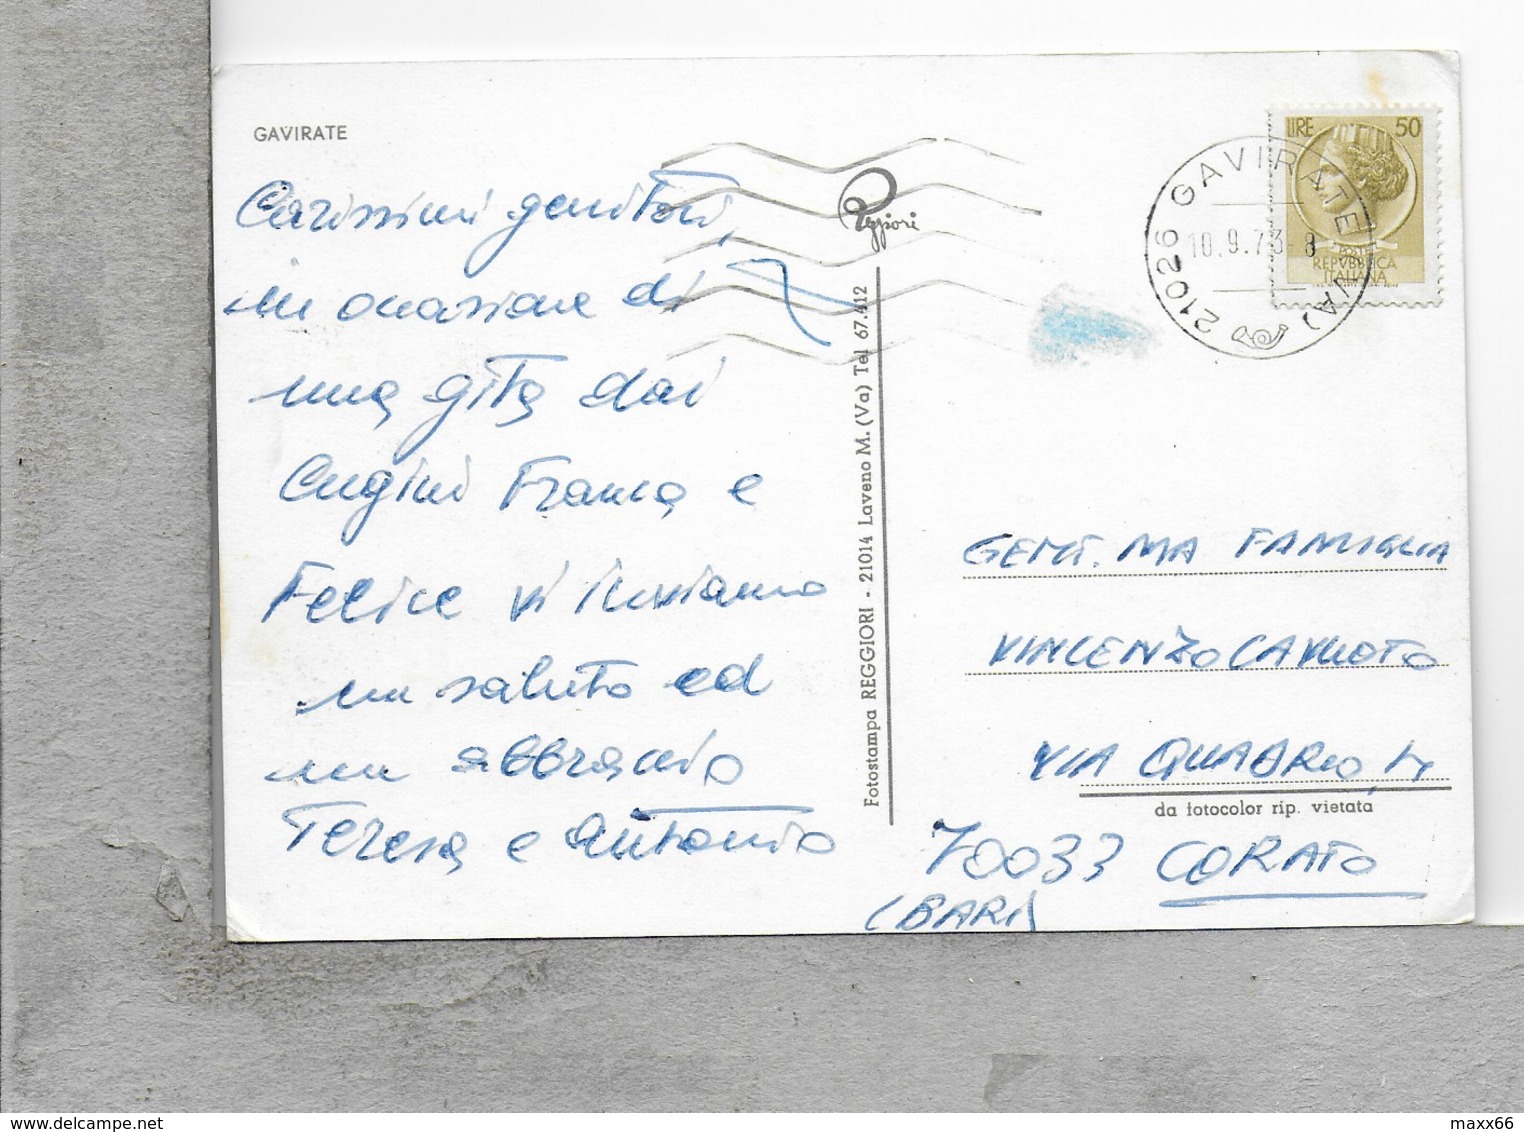 GAVIRATE
Carissimi genitori,
in occasione di
una gita dai
Cugini Franca e
Felice vi inviamo
un saluto ed
un abbraccio
Teresa e Antonio
Reggiori
Fotostampa REGGIORI - 21014 Laveno M. (Va) Tel 67.412
LIRE 50
REPVBBLICA
ITALIANA
21026 GAVIRATE (VA)
10.9.73-8
GENT.MA FAMIGLIA
VINCENZO CAVUOTO
VIA QUADRIO,
da fotocolor rip. vietata
70033 CORATO
(BARI)
maxx66